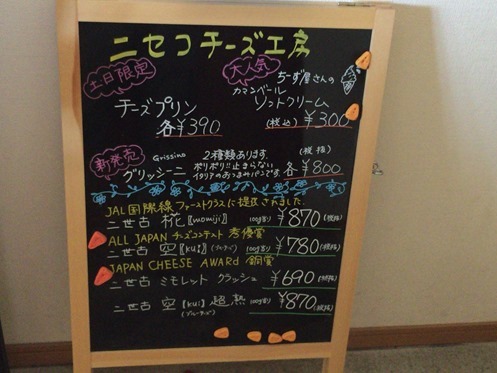 ニセコチーズ工房
土日限定
チーズプリン
各¥390
大人気
ちーず屋さんの
カマンベール
ソフトクリーム
(税込) ¥300
新発売
Grissino
グリッシーニ
2種類あります
ポリポリ!!止まらない
イタリアのおつまみパンです。
(税抜)
各¥800
JAL国際線ファーストクラスに提供されました
二世古 椛【momiji】 100g当り ¥870(税抜)
ALL JAPAN チーズコンテスト 秀優賞
二世古 空【ku:】(ブルーチーズ) 100g当り ¥780(税抜)
JAPAN CHEESE AWARd 銅賞
二世古 ミモレット クラッシュ ¥690(税抜)
二世古 空【ku:】超熟 100g当り ¥870(税抜)
(ブルーチーズ)